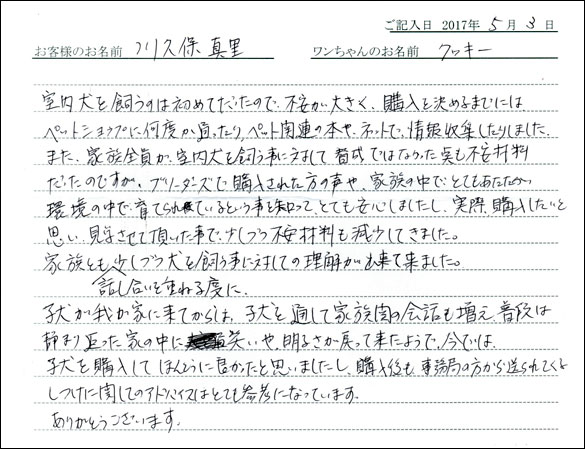 ご記入日 2017年 5月 3日
お客様のお名前 川久保 真里 ワンちゃんのお名前 クッキー
室内犬を飼うのは初めてだったので、不安が大きく、購入を決めるまでには
ペットショップに何度か通ったり、ペット関連の本や、ネットで、情報収集したりしました。
また、家族全員が、室内犬を飼う事に対して 賛成ではなかった点も不安材料
だったのですが、ブリーダーズで購入された方の声や、家族の中でとてもあたたかい
環境の中で、育てられているという事を知って、とても安心しましたし、実際、購入したいと
思い、見学させて頂いた事で、少しづつ不安材料も減少してきました。
家族とも 少しづつ犬を飼う事に対しての理解が出来て来ました。
話し合いを重ねる度に、
子犬が我が家に来てからは、子犬を通して家族間の会話も増え、普段は
静まり返った家の中に 笑いや、明るさが戻って来たようで、今では、
子犬を購入して ほんとうに良かったと思いましたし、購入後も 事務局の方から送られてくる
しつけに関してのアドバイスはとても参考になっています。
ありがとうございます。